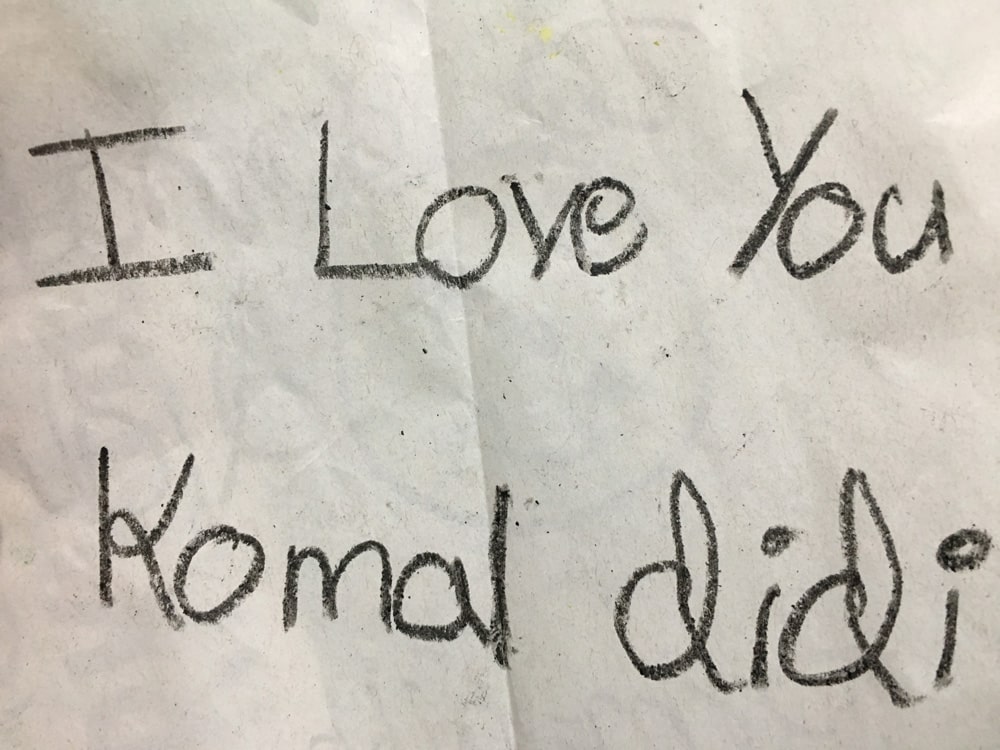 I Love You
Komal didi